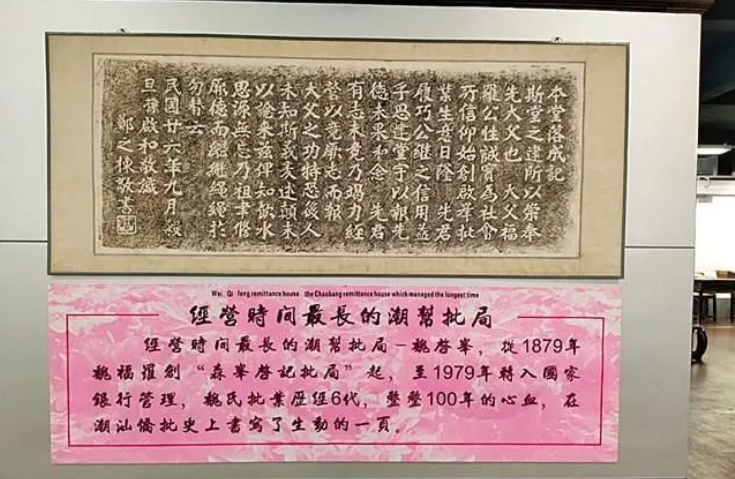 本堂落成記
斯堂之建所以崇奉
先大父也 大父福
羅公性誠實為社會
所信仰始創啟峯批
業生意日隆 先君
履巧公繼之信用益
孚思建堂宇以報先
德未果和念 先君
有志未竟乃竭力經
營以竟厥志而報
大父之功特恐後人
未知斯義爰述顛末
以諭來茲俾知飲水
思源無忘乃祖聿修
厥德而繼繼繩繩於
勿替云
民國廿六年九月 穀
旦孫啟和敬識
鄭之棟敬書
Wei Qi feng remittance house the Chaobang remittance house which managed the longest time
經營時间最長的潮幫批局
經營時间最長的潮幫批局－魏啓峯，從1879年
魏福羅創“森峯啓記批局”起，至1979年轉入國家
銀行管理，魏氏批業歷經6代，整整100年的心血，在
潮汕僑批史上書寫了生動的一頁。